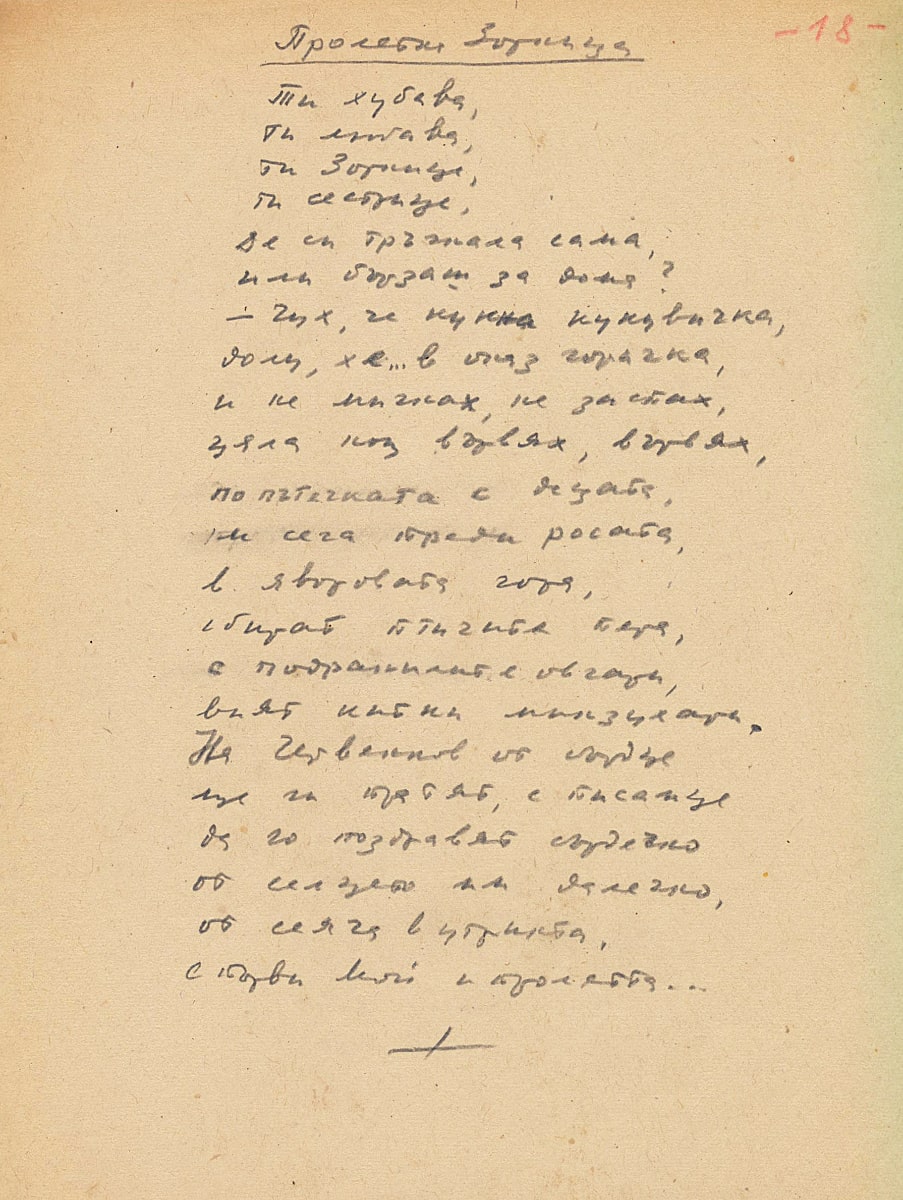 Пролетна Зорница
- 18 -
Ти хубава,
ти лютава,
ти Зорнице,
ти сестрице,
де си тръгнала сама,
или бързаш за дома?
– Чух, че кукна кукувичка,
долу, хе... в оназ горичка,
и не мигнах, не застах,
цяла нощ вървях, вървях,
по пътечката с децата,
сега преди росата,
в яворовата гора,
сбират птичите пера,
с подранилите овчари,
вият китки минзухари.
На Червенков от сърце
ще ги пратят, с писамце
да го поздравят сърдечно
от селцето ни далечно,
от сеяча в утринта,
с първи Май и пролетта...